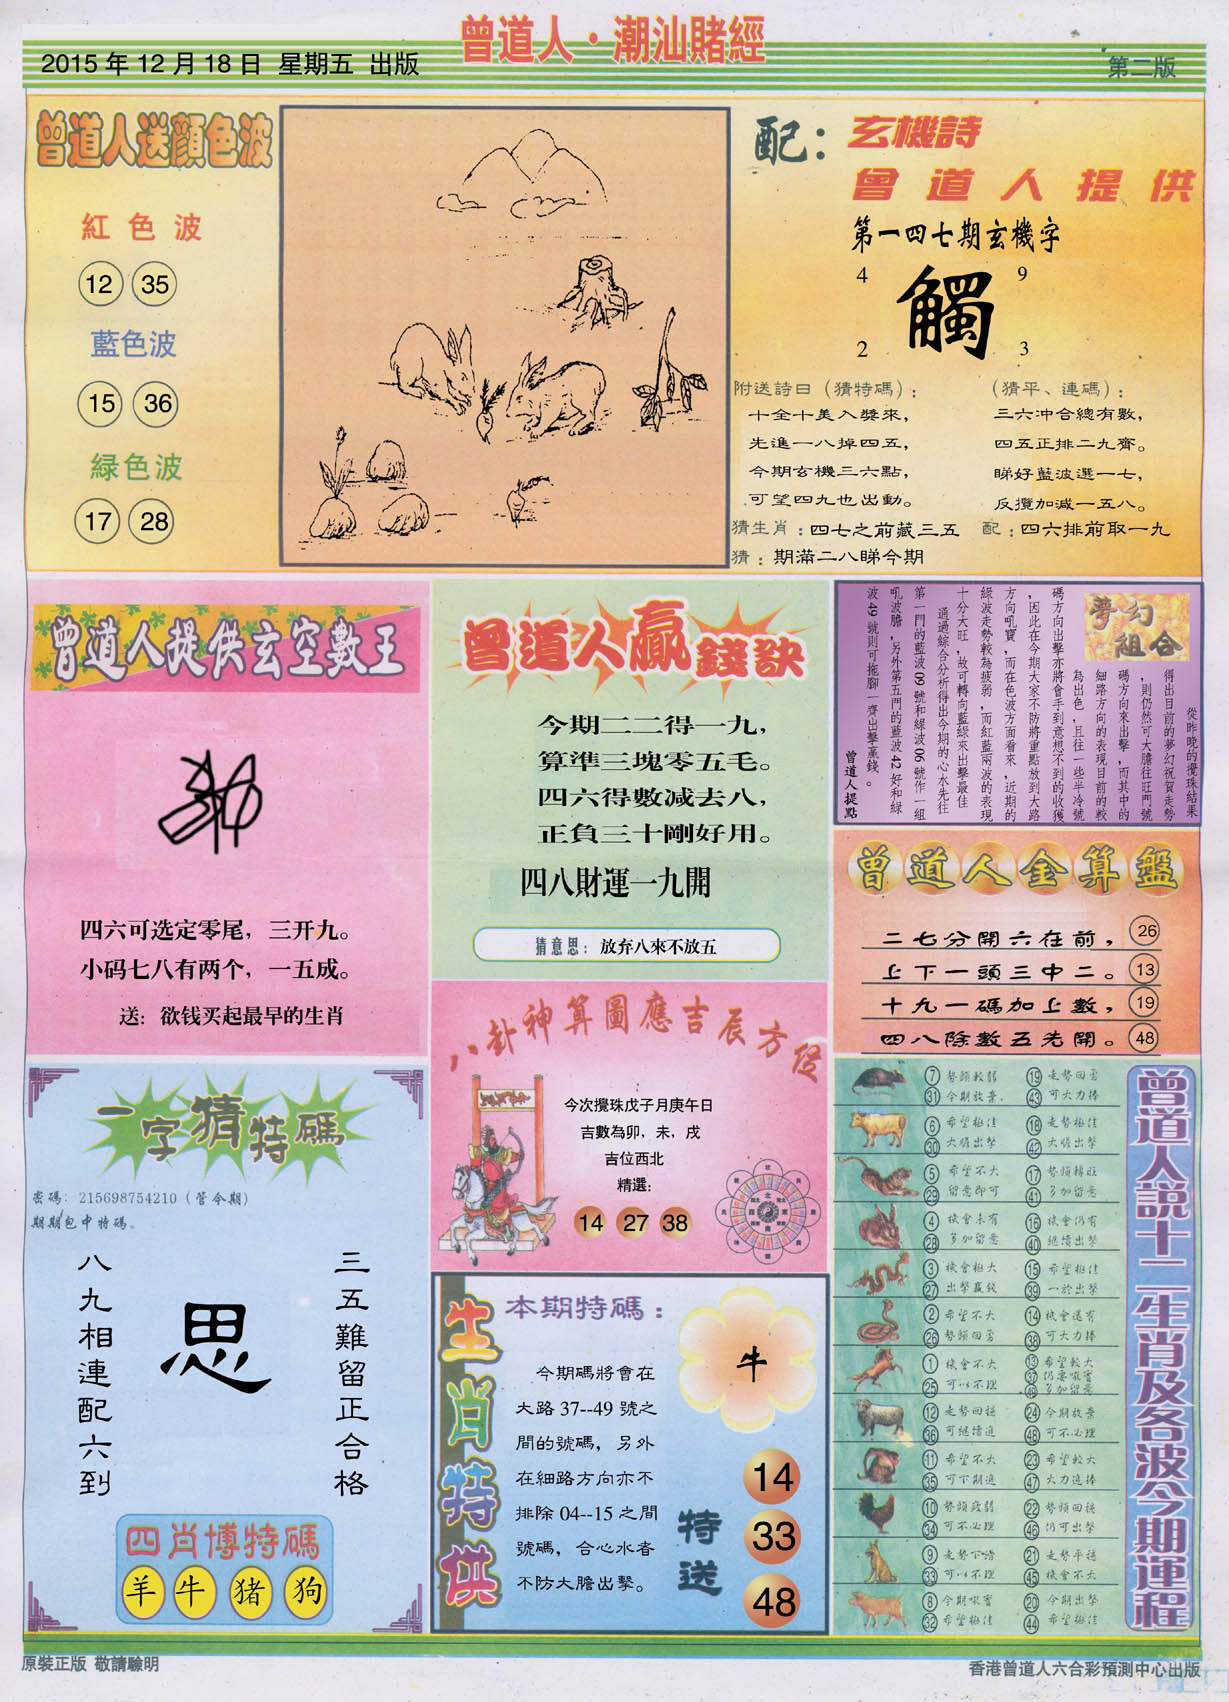 曾道人·潮汕賭經
2015 年 12 月 18 日 星期五 出版
第二版
曾道人送顏色波
紅色波
12 35
藍色波
15 36
緑色波
17 28
配：
玄機詩
曾道人提供
第一四七期玄機字
4 9
觸
2 3
附送詩曰（猜特碼）：
十全十美入獎來，
先進一八掉四五，
今期玄機三六點，
可望四九也出動。
（猜平、連碼）：
三六冲合總有數，
四五正排二九齊。
睇好藍波選一七，
反攬加減一五八。
猜生肖：四七之前藏三五
配：四六排前取一九
猜：期滿二八睇今期
曾道人提供玄空數王
四六可选定零尾，三开九。
小码七八有两个，一五成。
送：欲钱买起最早的生肖
曾道人贏錢訣
今期二二得一九，
算準三塊零五毛。
四六得數减去八，
正負三十剛好用。
四八財運一九開
猜意思：放弃八來不放五
夢幻
組合
從昨晚的攪珠結果
得出目前的夢幻祝賀走勢
，則仍然可大膽往旺門號
碼方向來出擊，而其中的
細路方向的表現目前的較
為出色，且往一些半冷號
碼方向出擊亦將會手到意想不到的收獲
，因此在今期大家不防將重點放到大路
方向吼寶，而在色波方面看來，近期的
綠波走勢較為疲弱，而紅藍兩波的表現
十分大旺，故可轉向藍綠來出擊最佳
通過綜合分析得出今期的心水先往
第一門的藍波 09 號和綠波 06 號作一組
吼波膽，另外第五門的藍波 42 好和綠
波 49 號則可拖腳一齊出擊贏錢。
曾道人提點
曾道人金算盤
二七分開六在前， 26
上下一頭三中二。 13
十九一碼加上數， 19
四八除數五先開。 48
八卦神算圖應吉辰方位
今次攪珠戊子月庚午日
吉數為卯，未，戌
吉位西北
精選：
14 27 38
一字猜特碼
密碼：215698754210（管今期）
期期包中特碼。
三五難留正合格
思
八九相連配六到
四肖博特碼
羊 牛 猪 狗
生肖特供
本期特碼：
牛
今期碼將會在
大路 37--49 號之
間的號碼，另外
在細路方向亦不
排除 04--15 之間
號碼，合心水者
不防大膽出擊。
特送
14
33
48
曾道人説十二生肖及各波今期運程
7 勢頭較弱 19 走勢回勇
31 今期放棄 43 可大力捧
6 希望極佳 18 走勢極佳
30 大膽出擊 42 大膽出擊
5 希望不大 17 勢頭轉旺
29 留意即可 41 多加留意
4 機會未有 16 機會仍有
28 多加留意 40 繼續出擊
3 機會極大 15 希望極佳
27 出擊贏錢 39 一於出擊
2 希望不大 14 機會還有
26 勢頭回勇 38 可大力捧
1 機會不大 13 希望較大
25 可以不理 37 仍要吸寶
49 多加留意
12 走勢回穩 24 今期放棄
36 可繼續追 48 可不必理
11 希望不大 23 希望較大
35 可下期追 47 大力追捧
10 勢頭疲弱 22 勢頭回穩
34 可不必理 46 仍可出擊
9 走勢下滑 21 走勢平穩
33 可以不理 45 機會不大
8 今期吸寶 20 今期出擊
32 希望極佳 44 希望極佳
原裝正版 敬請驗明
香港曾道人六合彩預測中心出版